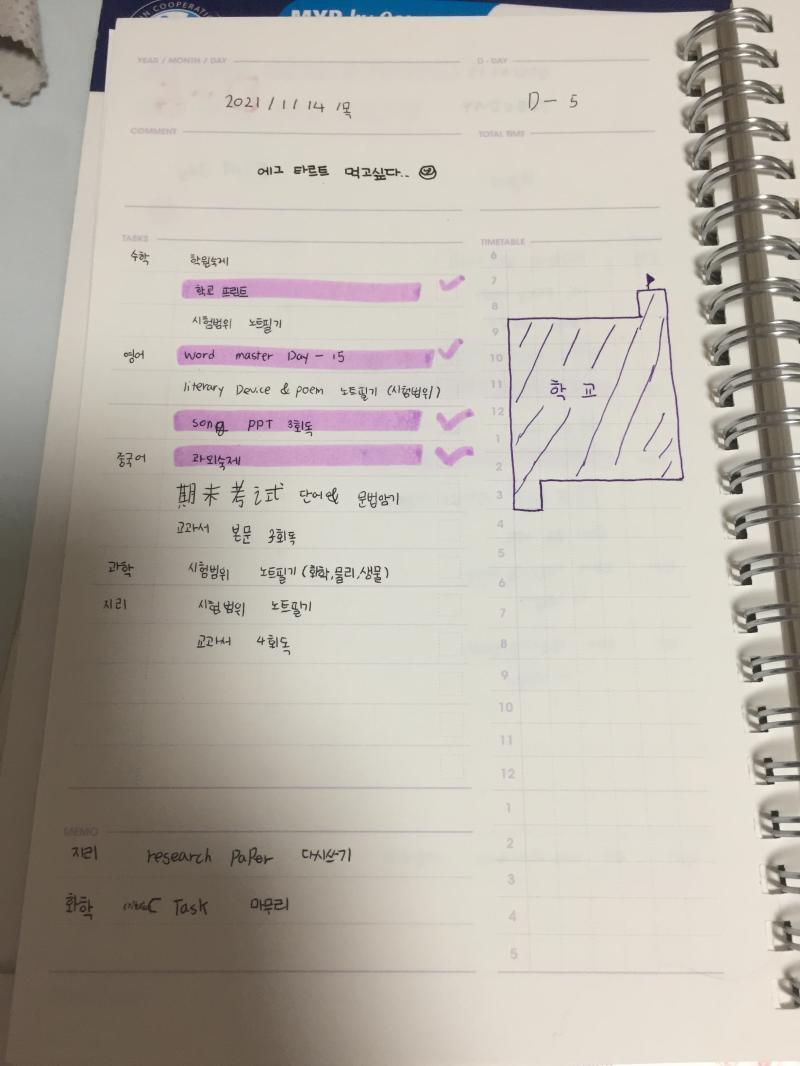 YEAR / MONTH / DAY
D-DAY
2021 / 11 14 목
D - 5
COMMENT
TOTAL TIME
에그 타르트 먹고싶다..
TASKS
TIMETABLE
수학 학원숙제
학교 프린트
시험범위 노트필기
영어 word master Day - 15
literary Device & poem 노트필기 (시험범위)
song PPT 3회독
중국어 과외숙제
期末考试 단어 & 문법암기
교과서 본문 3회독
과학 시험범위 노트필기 (화학,물리,생물)
지리 시험범위 노트필기
교과서 4회독
6
7
8
9
10
11
12
1
2
3
4
5
6
7
8
9
10
11
12
1
2
3
4
5
학교
MEMO
지리 research paper 다시쓰기
화학 Task 마무리